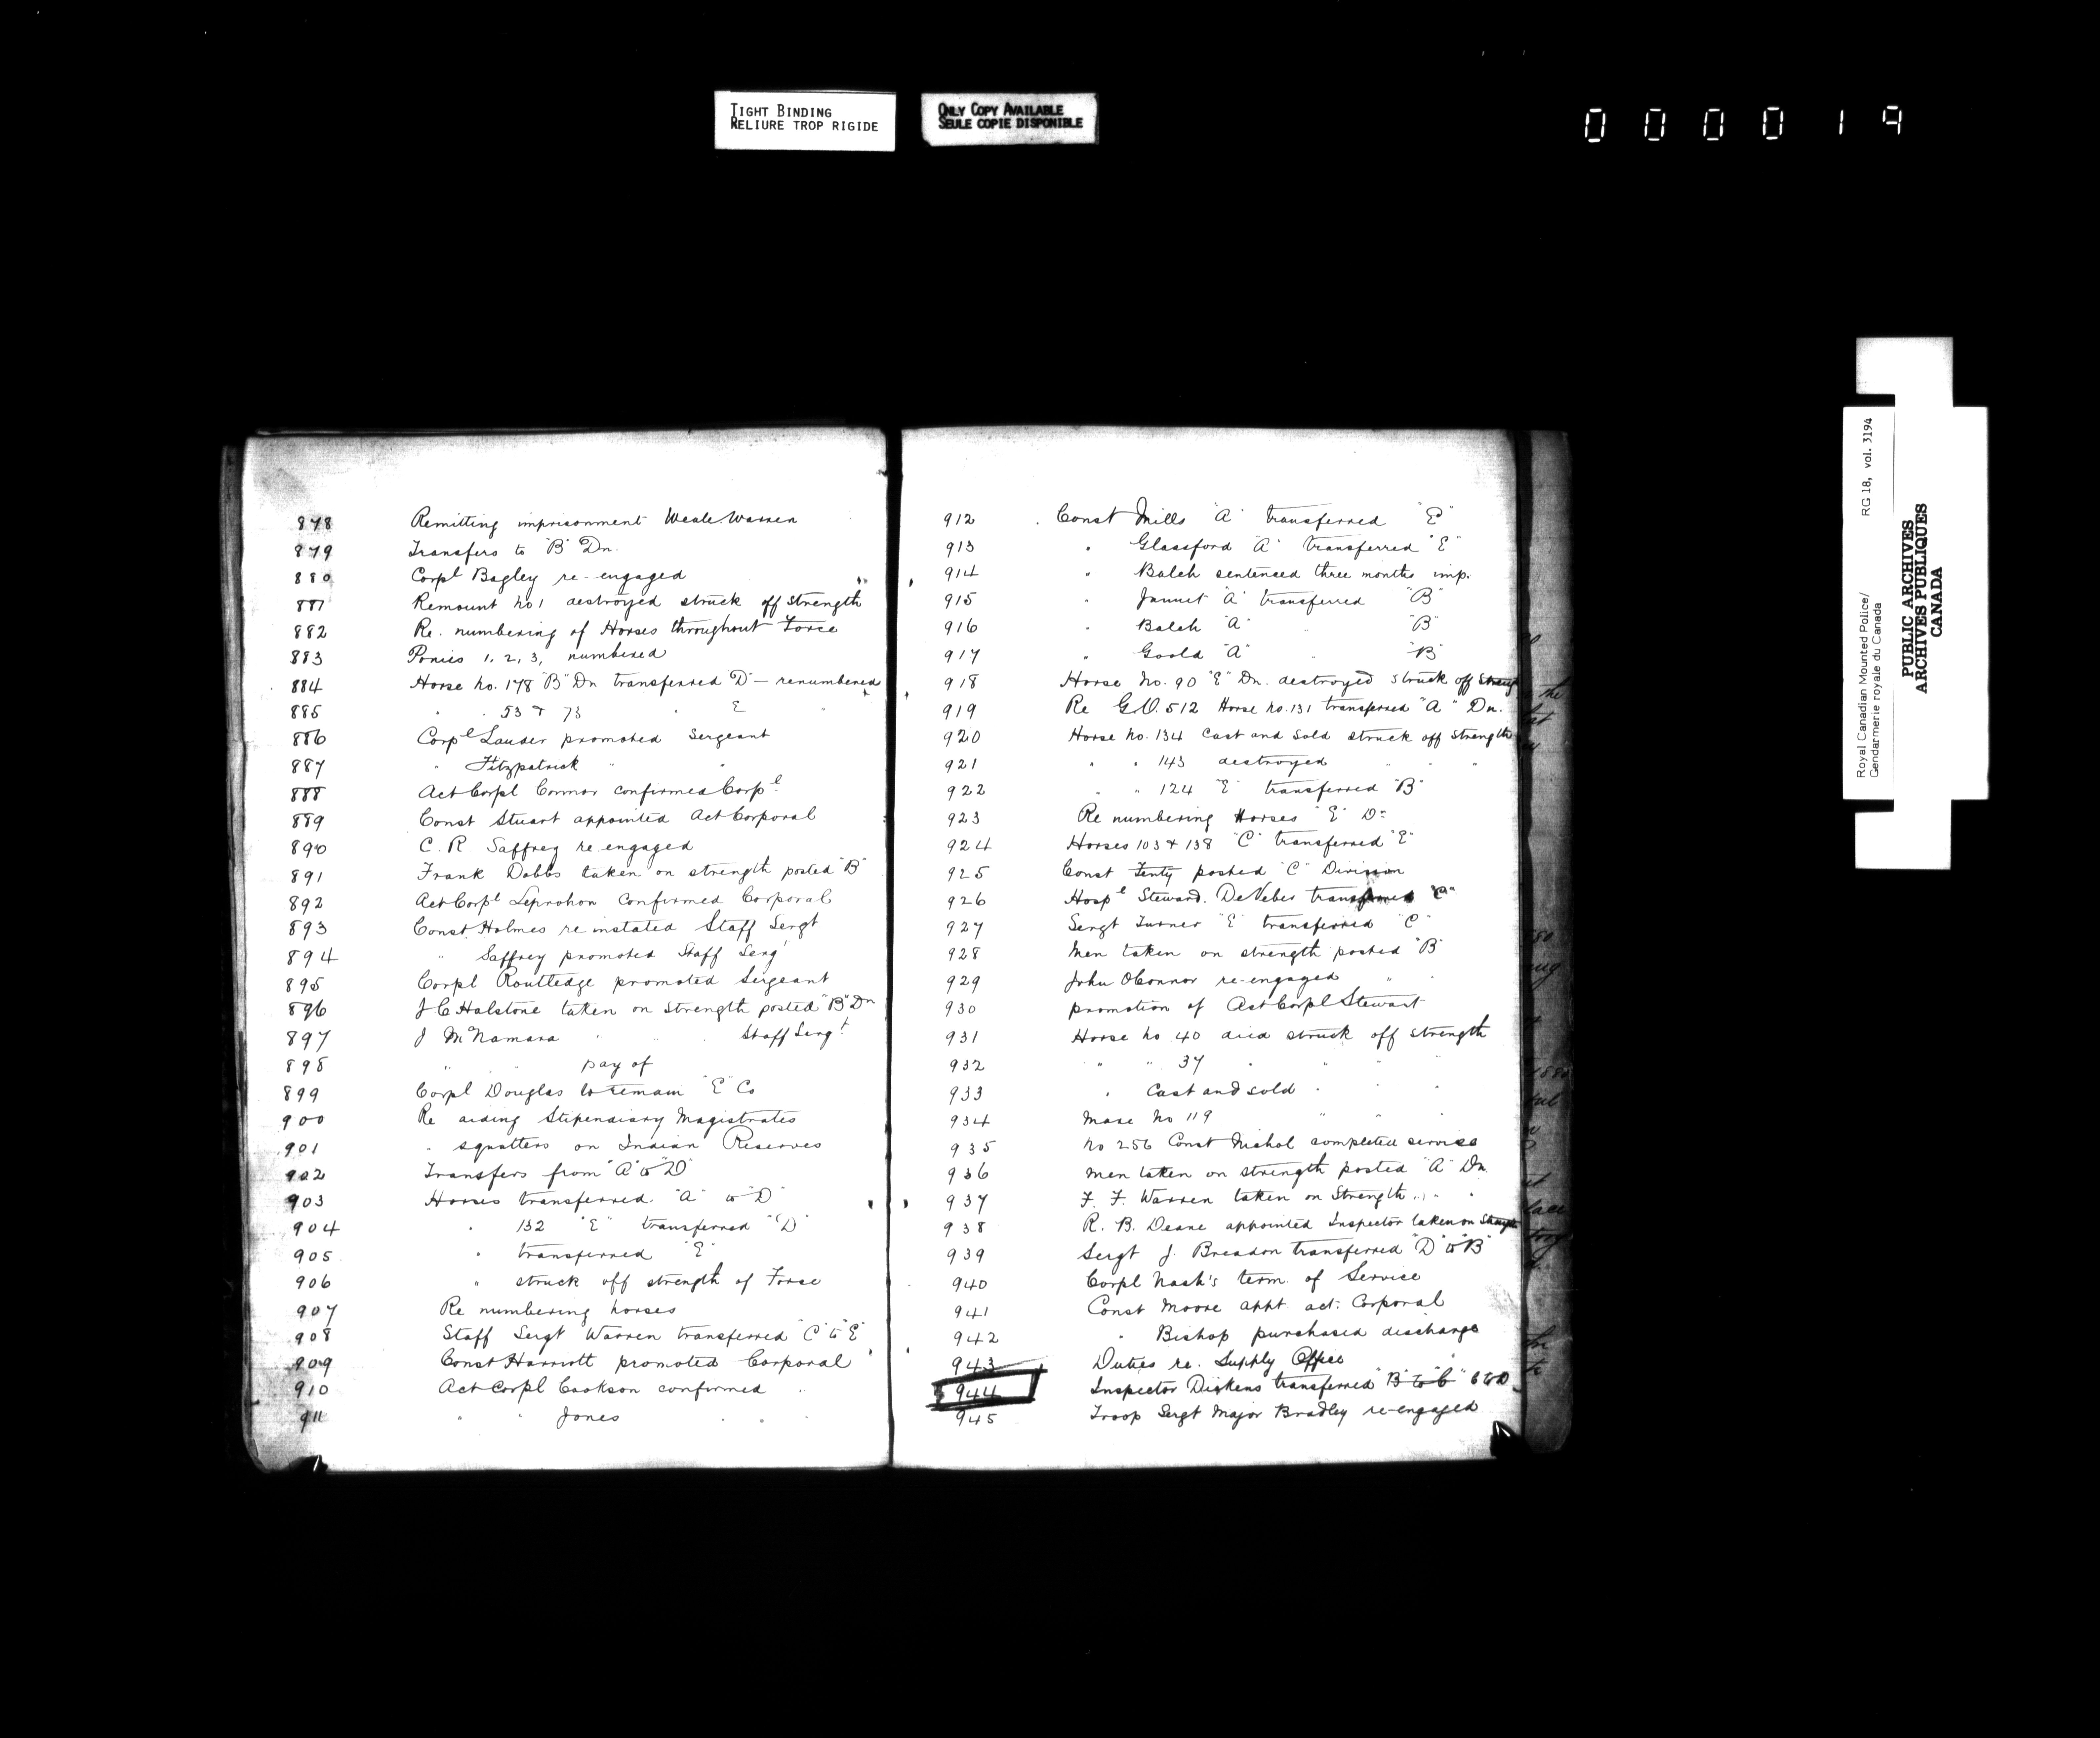 TIGHT BINDING
RELIURE TROP RIGIDE
ONLY COPY AVAILABLE
SEULE COPIE DISPONIBLE
000019
878 Remitting imprisonment Weale Warren
879 Transfers to "B" Dn.
880 Corpl Bagley re-engaged
881 Remount No 1 destroyed struck off strength
882 Re. numbering of Horses throughout Force
883 Ponies 1, 2, 3, numbered
884 Horse No. 178 "B" Dn transferred "D" — renumbered
885 " . 53 & 73 " E "
886 Corpl Lauder promoted Sergeant
887 " Fitzpatrick " "
888 Act Corpl Connor confirmed Corpl
889 Const Stuart appointed Act Corporal
890 C. R Saffrey re engaged
891 Frank Dobbs taken on strength posted "B"
892 Act Corpl Leprohon confirmed Corporal
893 Const Holmes re instated Staff Sergt
894 " Saffrey promoted Staff Serg'
895 Corpl Routledge promoted Sergeant
896 J C Halstone taken on strength posted "B" Dn
897 J McNamara " " Staff Sergt
898 " " pay of
899 Corpl Douglas to remain "E" Co
900 Re aiding Stipendiary Magistrates
901 " squatters on Indian Reserves
902 Transfers from "A" to "D"
903 Horses transferred "A" to "D"
904 " 132 "E" transferred "D"
905 " transferred "E"
906 " struck off strength of Force
907 Re numbering horses
908 Staff Sergt Warren transferred "C" to "E"
909 Const Harriott promoted Corporal
910 Act Corpl Cookson confirmed "
911 " " Jones " "
912 Const Mills "A" transferred "E"
913 " Glassford "A" transferred "E"
914 " Balch sentenced three months imp.
915 " "A" transferred "B"
916 " Balch "A" " "B"
917 " Goold "A" " "B"
918 Horse No. 90 "E" Dn. destroyed struck off
919 Re G.O. 512 Horse No. 131 transferred "A" Dn.
920 Horse No. 134 Cast and sold struck off strength
921 " " 143 destroyed " " "
922 " " 124 "E" transferred "B"
923 Re numbering Horses "E" Dn
924 Horses 103 & 138 "C" transferred "E"
925 Const Fenty posted "C" Division
926 Hospl Steward. DeVeber transferred "C"
927 Sergt Turner "E" transferred "C"
928 Men taken on strength posted "B"
929 John OConnor re-engaged " "
930 promotion of Act Corpl Stewart
931 Horse No. 40 died struck off strength
932 " " 37 " " "
933 " Cast and sold " "
934 Mare No 119 " " "
935 No 256 Const Nichol completed service
936 Men taken on strength posted "A" Dn.
937 F. F. Warren taken on Strength " " "
938 R. B. Deane appointed Inspector taken on
939 Sergt J. Breadon transferred "D" to "B"
940 Corpl Nash's term of Service
941 Const Moore appt. act. Corporal
942 " Bishop purchased discharge
943 Duties re. Supply Office
944 Inspector Dickens transferred "B" to "C" C to D
945 Troop Sergt Major Bradley re-engaged
Royal Canadian Mounted Police/ RG 18, vol. 3194
Gendarmerie royale du Canada
PUBLIC ARCHIVES
ARCHIVES PUBLIQUES
CANADA